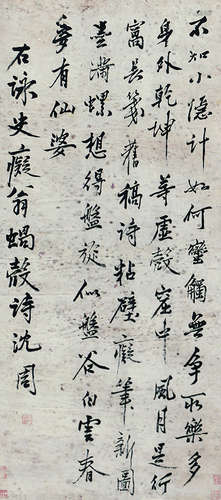 不知小隱計如何蠻觸無爭所樂多
身外乾坤等虛殼中風月是行
窩長箋舊稿詩粘壁癡筆新圖
螺想得盤旋似盤谷白雲春
夢有仙婆
右詠史癡翁蝸殼詩沈周